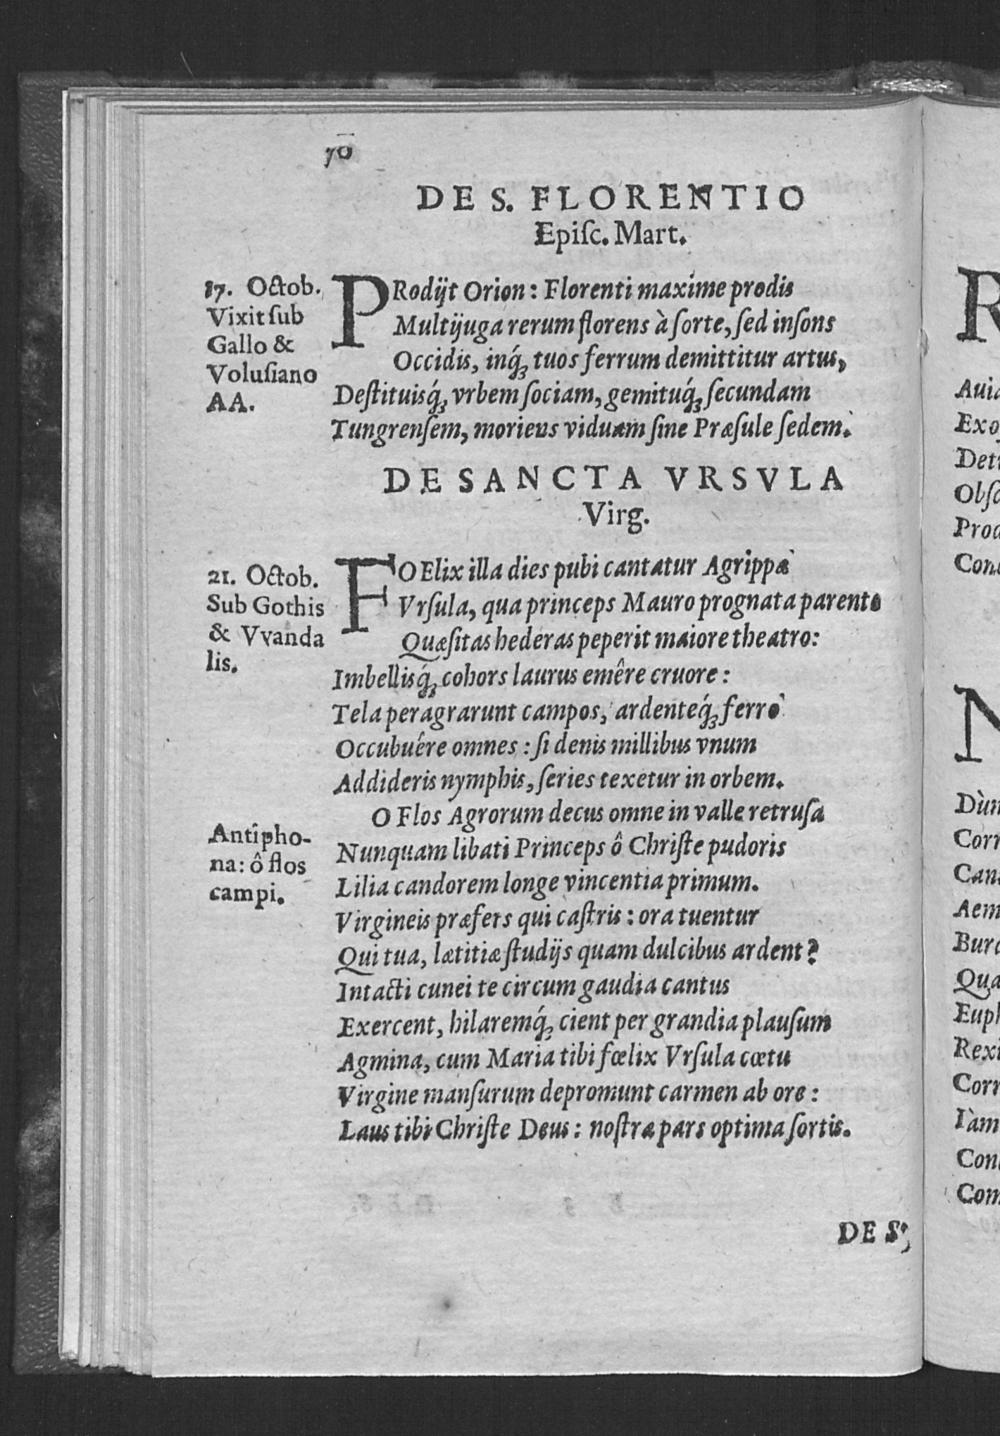 70
DE S. FLORENTIO
Episc. Mart.
17. Octob.
Vixit sub
Gallo &
Volusiano
AA.
PRodijt Orion: Florenti maxime prodis
Multijuga rerum florens à sorte, sed insons
Occidis, inq́ꝫ tuos ferrum demittitur artus,
Destituisq́ꝫ, vrbem sociam, gemituq́ꝫ secundam
Tungrensem, moriens viduam sine Præsule sedem.
DE SANCTA VRSVLA
Virg.
21. Octob.
Sub Gothis
& Vvanda
lis.
FOElix illa dies pubi cantatur Agrippæ
Vrsula, qua princeps Mauro prognata parente
Quæsitas hederas peperit maiore theatro:
Imbellisq́ꝫ cohors laurus emêre cruore:
Tela peragrarunt campos, ardenteq́ꝫ ferro
Occubuêre omnes: si denis millibus vnum
Addideris nymphis, series texetur in orbem.
Antipho-
na: ô flos
campi.
O Flos Agrorum decus omne in valle retrusa
Nunquam libati Princeps ô Christe pudoris
Lilia candorem longe vincentia primum.
Virgineis præfers qui castris: ora tuentur
Qui tua, lætitiæ studijs quam dulcibus ardent?
Intacti cunei te circum gaudia cantus
Exercent, hilaremq́ꝫ cient per grandia plausum
Agmina, cum Maria tibi fœlix Vrsula cœtu
Virgine mansurum depromunt carmen ab ore:
Laus tibi Christe Deus: nostra pars optima sortis.
DE S.
R
Avia
Exo
Det
Obs
Prod
Con
N
Dùm
Corr
Can
Aem
Burg
Qua
Euph
Rexi
Corr
Iàm
Con
Com